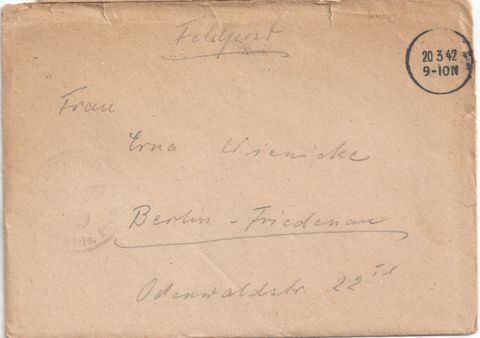 Feldpost
20 3 42
9-10N
Frau
Erna Wienicke
Berlin - Friedenau
Odenwaldstr. 22